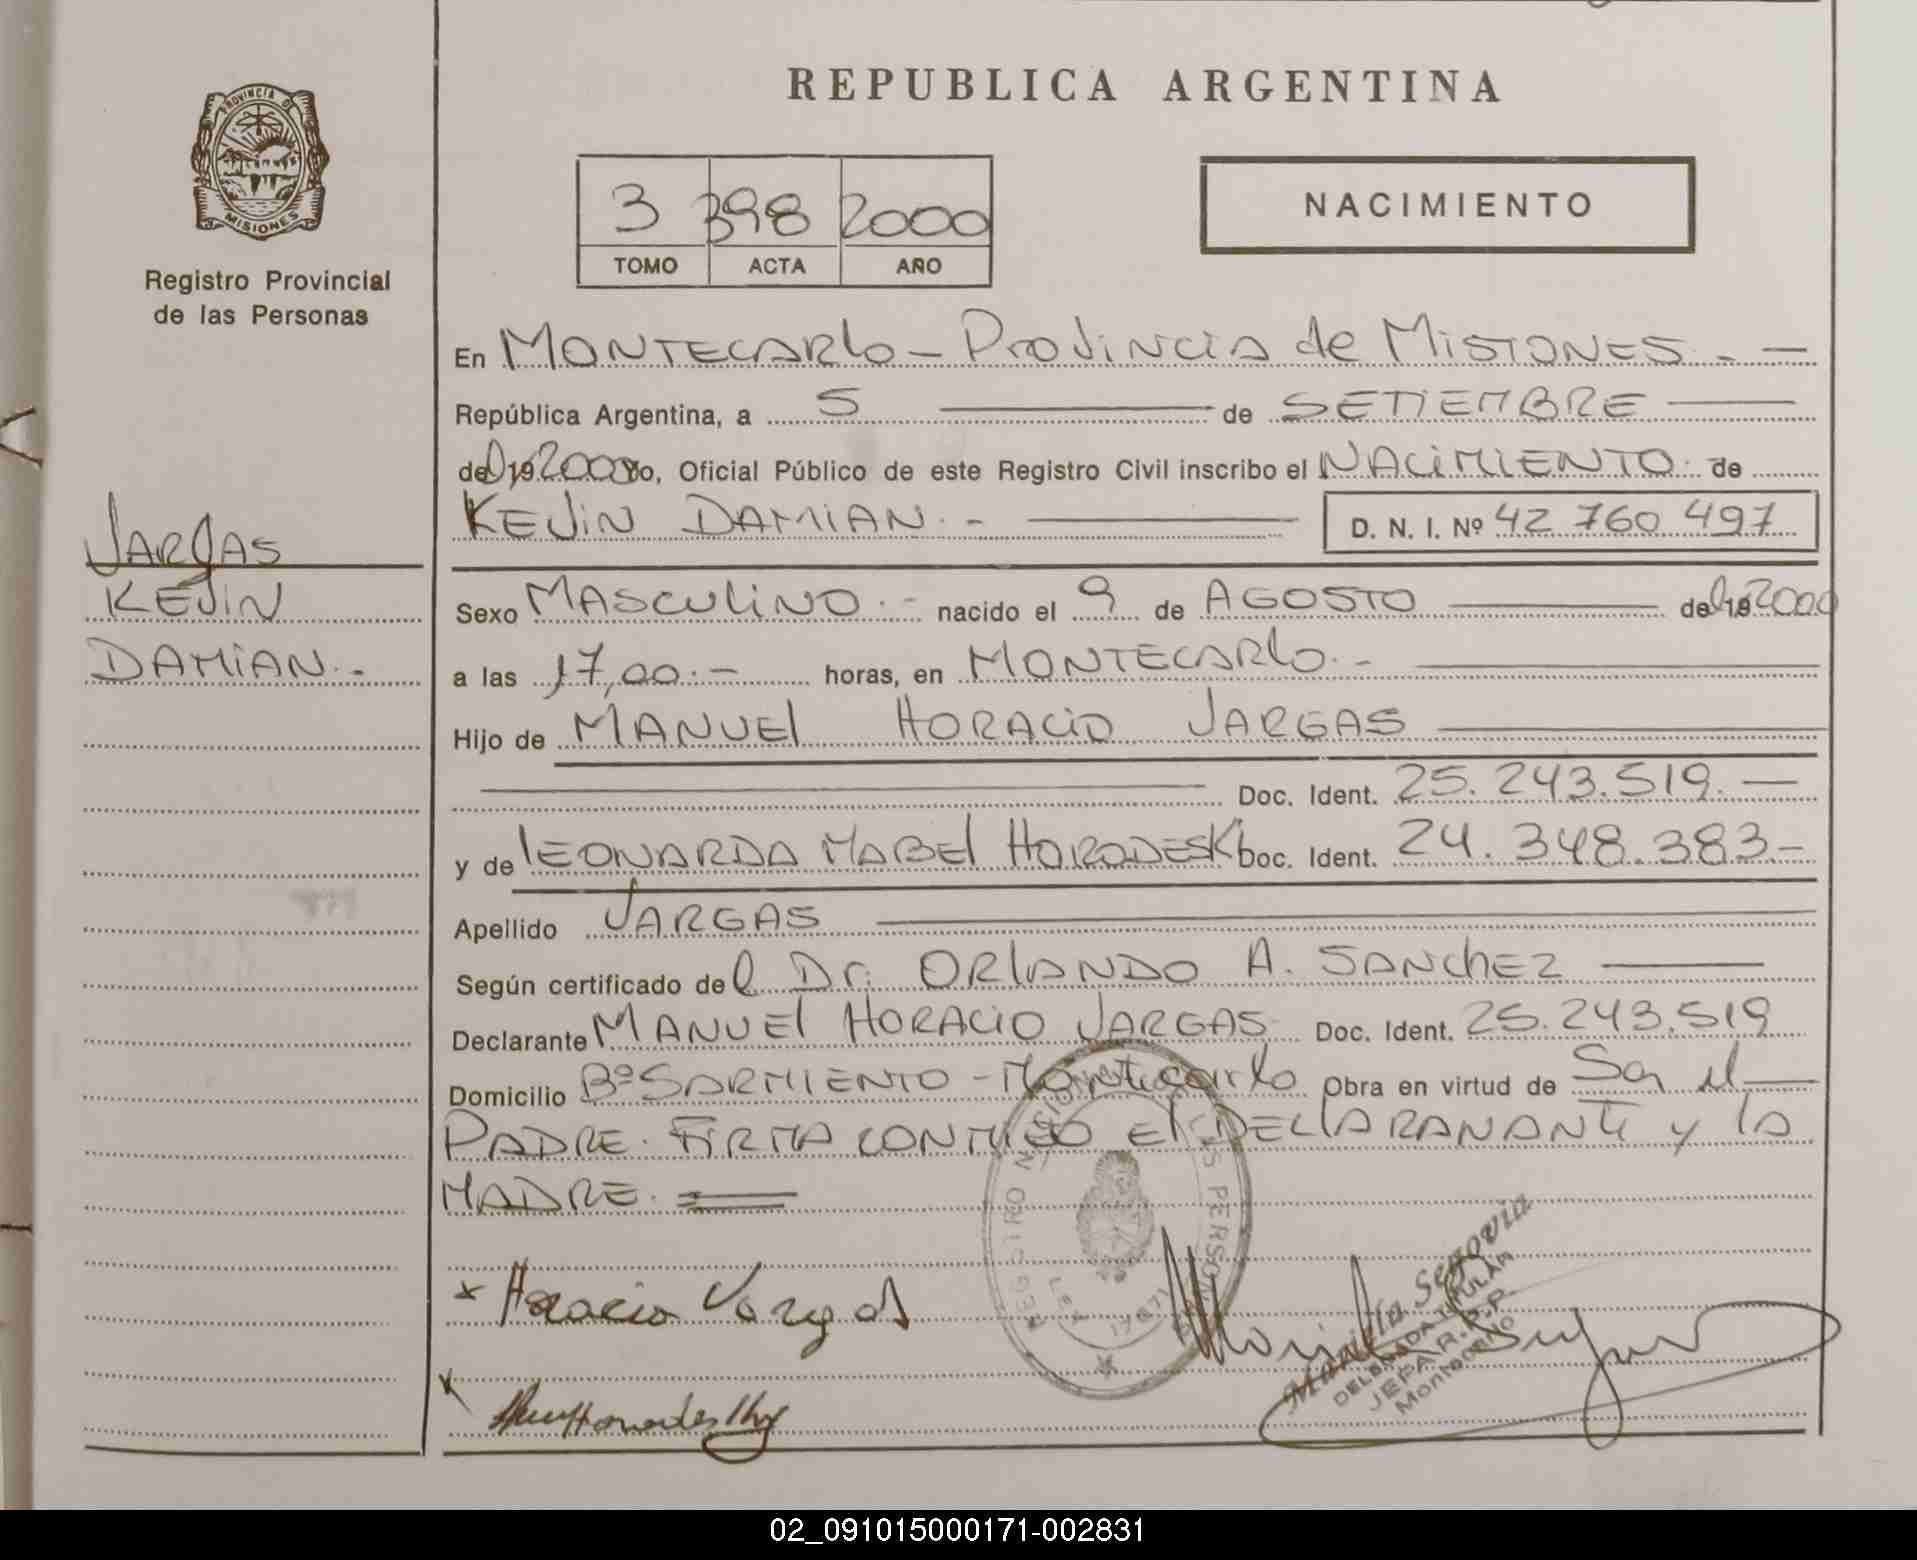 REPUBLICA ARGENTINA
PROVINCIA DE MISIONES
Registro Provincial
de las Personas
3 398 2000
TOMO ACTA AÑO
NACIMIENTO
En MONTECARlo - PROVINCIA de MISIONES. -
República Argentina, a 5 de SETIEMBRE
del 19 2000 Yo, Oficial Público de este Registro Civil inscribo el NACIMIENTO. de
KEVIN DAMIAN. - D. N. I. Nº 42 760 497
VARGAS
KEVIN
DAMIAN. -
Sexo MASCULINO. - nacido el 9 de AGOSTO del 19 2000
a las 17,00. - horas, en MONTECARlo. -
Hijo de MANUEl HORACIO VARGAS
Doc. Ident. 25.243.519. -
y de lEONARDA MABEl HORODESKI Doc. Ident. 24.348.383 -
Apellido VARGAS
Según certificado del Dr. ORlANDO A. SANChEZ
Declarante MANUEl HORACIO VARGAS Doc. Ident. 25.243.519
Domicilio Bº SARMIENTO - Montecarlo Obra en virtud de Ser el
PADRE. FIRMA CONMIGO El DEClARANANTE y lA
MADRE. =
REGISTRO NACIONAL LAS PERSONAS
LEY 17671
x Horacio Vargas
x
Marilla Segovia
DELEGADA TITULAR
JEFA R.P.P.
02_091015000171-002831